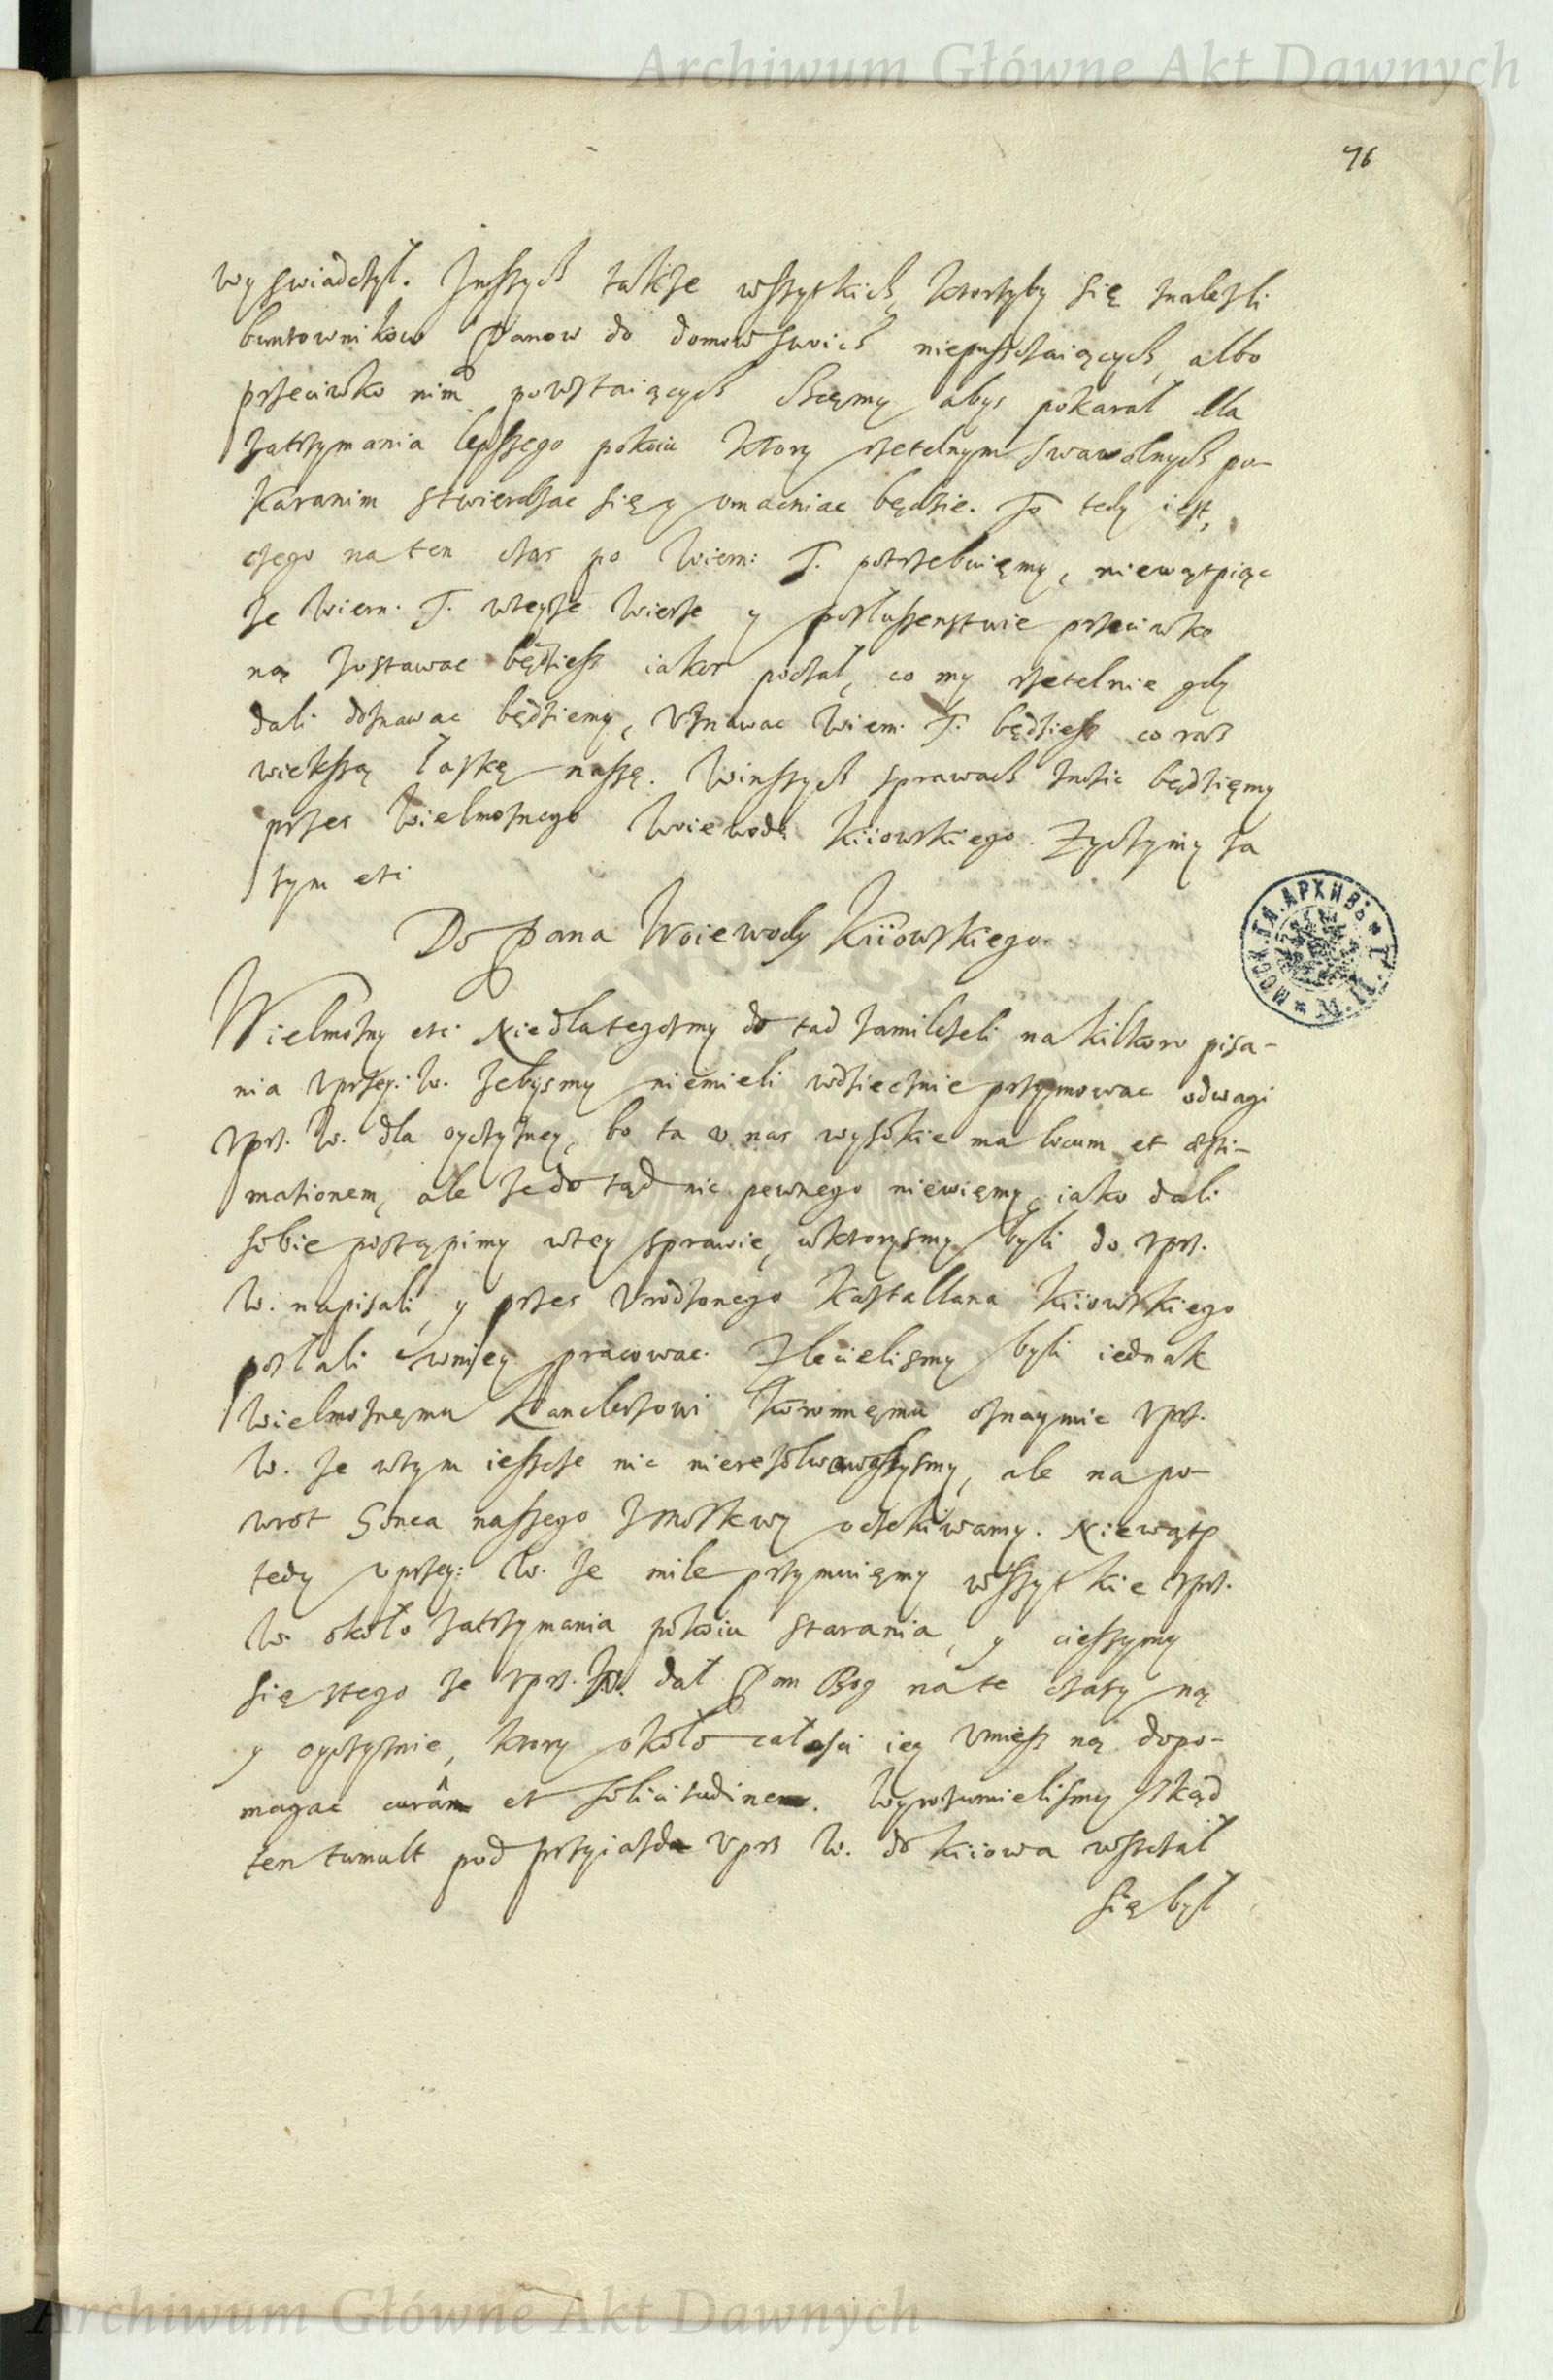 Archiwum Główne Akt Dawnych
76
wyswiadczył. Inszych także wszytkich, ktorzyby się znalezli
buntownikow Panow do domow swoich niepuszczaiących, albo
przeciwko nim powstaiących chcęmy abys pokarał dla
zatrzymania lepszego pokoiu ktory rzetelnym swawolnych po-
karanim stwierdzac się y vmacniac będzie. To tedy iest,
czego na ten czas po Wiern: T. potrzebuięmy, niewątpiąc
że Wiern. T. wteyże wierze y posłuszenstwie przeciwko
ną zostawac będziesz iakos począł, co my rzetelnie gdy
dali doznawac będziemy, Vznawac Wiern. T. będziesz co raz
wiekszą łaskę naszę. Winszych sprawach znosic będzięmy
przez Wielmożnego Woiewodę Kiiowskiego. Zyczymy za
tym etc
Do Pana Woiewody Kiiowskiego.
Wielmożny etc Niedlategosmy do tad zamilczeli na kilkoro pisa-
nia Vprzey: W. żebysmy niemieli wdziecznie przymowac odwagi
Vprz. W. dla oyczyzney, bo ta v nas wysokie ma locum et æsti-
mationem, ale że do tąd nic pewnego niewięmy, iako dali
sobie postąpimy wtey sprawie, wktorysmy byli do Vprz.
W. napisali, y przez Vrodzonego Kasztallana Kiiowskiego
posłali wniey pracowac. Zlecielismy byli iednak
Wielmożnęmu Kanclerzowi Koronnęmu oznaymic Vprz.
W. że wtym ieszcze nic nierezolwowalysmy, ale na po-
wrot Gonca naszego zmoskwy oczekiwamy. Niewątp
tedy Vprzey: W. że mile przymuięmy wszytkie Vprz.
W. około zatrzymania pokoiu starania, y cieszymy
się ztego że Vprz. W. dał Pan Bog na te czasy ną
y oyczyznie, ktory około całosci iey Vmiesz ną dopo-
magac curâm et solicitudinem. Wyrozumielismy zkąd
ten tumult pod przyiazd Vprz W. do Kiiowa wszczął
się był
МОСК. ГЛ. АРХИВЪ
Archiwum Główne Akt Dawnych